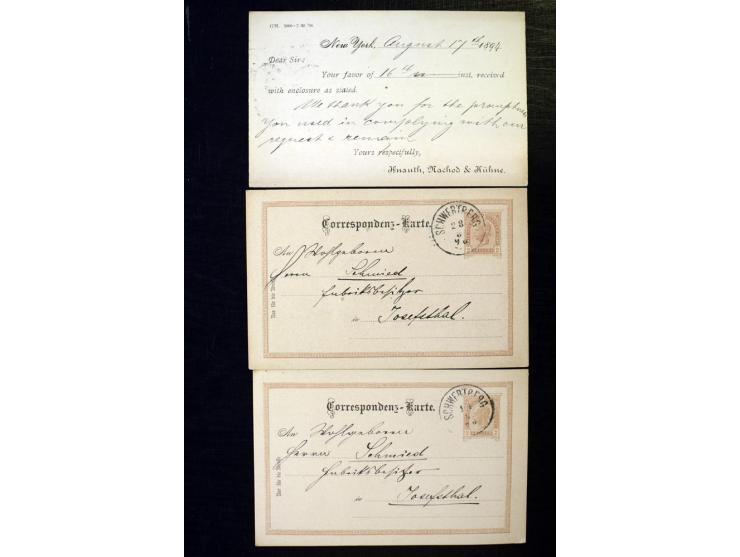 New York, August 17th 1894
Dear Sirs
Your favor of 16th inst. received
with enclosure as stated.
We thank you for the promptness
you used in complying with our
request & remain
Yours respectfully,
Knauth, Nachod & Kühne.
Correspondenz-Karte.
SCHWERTBERG
28
An Wohlgeboren
Herrn Schmied
Fabriksbesitzer
in Josefsthal.
Correspondenz-Karte.
SCHWERTBERG
An Wohlgeboren
Herrn Schmied
Fabriksbesitzer
in Josefsthal.